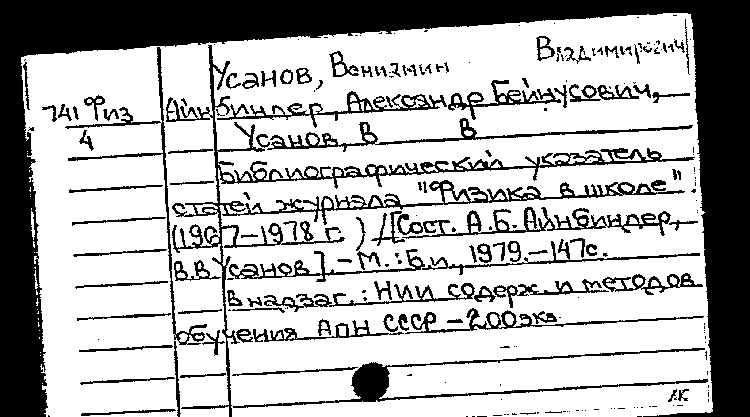 Усанов, Вениамин Владимирович
741 Физ
4
Айнбиндер, Александр Бейнусович,
Усанов, В В
Библиографический указатель
статей журнала "Физика в школе"
(1967-1978 г. ) / [Сост. А.Б. Айнбиндер,
В.В Усанов]. - М. : Б.и., 1979. - 147с.
В надзаг. : НИИ содерж. и методов
обучения АПН СССР - 200экз
АК